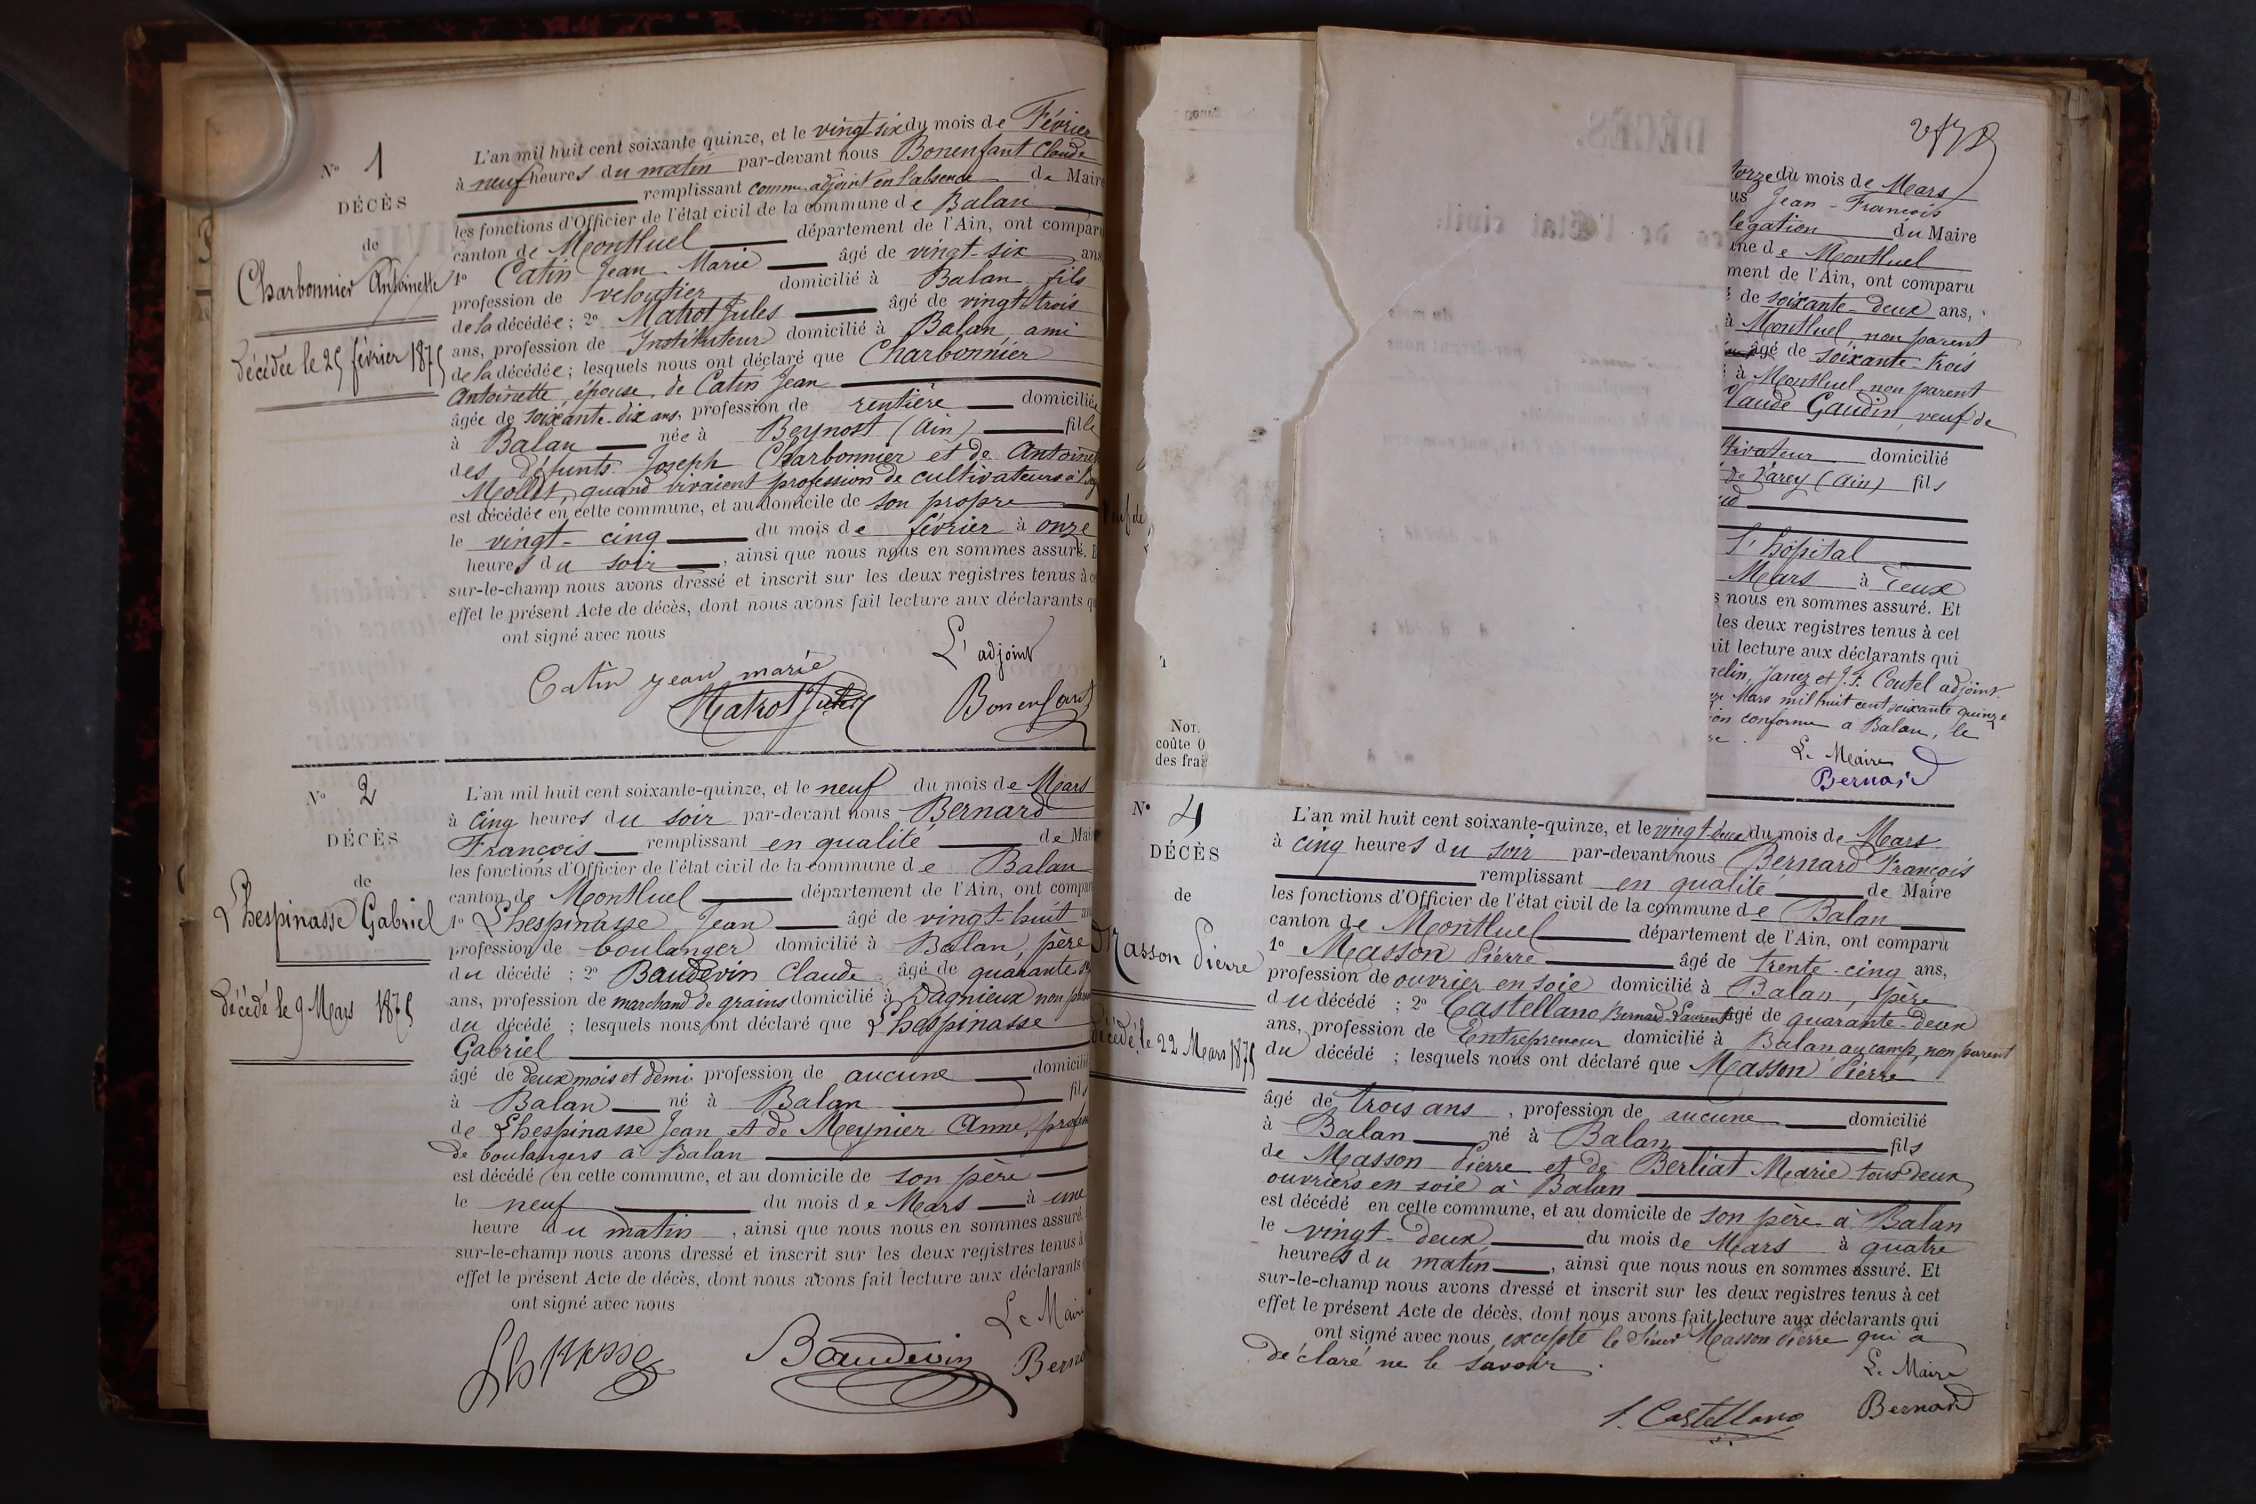 N° 1
DÉCÈS
de
Charbonnier Antoinette
Décédée le 25 février 1875
L'an mil huit cent soixante quinze, et le vingt six du mois de Février
à neuf heures du matin par-devant nous Bonenfant Claude
remplissant comme adjoint en l'absence de Maire
les fonctions d'Officier de l'état civil de la commune de Balan
canton de Montluel département de l'Ain, ont comparu
1° Catin Jean Marie âgé de vingt-six ans
profession de veloutier domicilié à Balan, fils
de la décédée; 2° Matrot Jules âgé de vingt-trois
ans, profession de Instituteur domicilié à Balan, ami
de la décédée; lesquels nous ont déclaré que Charbonnier
Antoinette, épouse de Catin Jean
âgée de soixante-dix ans, profession de rentière domiciliée
à Balan née à Beynost (Ain) fille
des défunts Joseph Charbonnier et de
quand vivaient profession de cultivateurs à
est décédée en cette commune, et au domicile de son propre
le vingt-cinq du mois de février à onze
heures du soir, ainsi que nous nous en sommes assuré.
sur-le-champ nous avons dressé et inscrit sur les deux registres tenus à
effet le présent Acte de décès, dont nous avons fait lecture aux déclarants
ont signé avec nous
L'adjoint
Catin jean marie
Matrot Jules
Bonenfant
N° 2
DÉCÈS
de
Lhespinasse Gabriel
Décédé le 9 Mars 1875
L'an mil huit cent soixante-quinze, et le neuf du mois de Mars
à cinq heures du soir par-devant nous Bernard
François remplissant en qualité de
les fonctions d'Officier de l'état civil de la commune de Balan
canton de Montluel département de l'Ain, ont
1° Lhespinasse Jean âgé de vingt-huit
profession de boulanger domicilié à Balan, père
du décédé; 2° Baudevin Claude âgé de quarante
ans, profession de marchand de grains domicilié à Dagnieux non
du décédé; lesquels nous ont déclaré que Lhespinasse
Gabriel
âgé de deux mois et demi profession de aucune
à Balan né à Balan fils
de Lhespinasse Jean et de Meynier Anne,
de boulangers à Balan
est décédé en cette commune, et au domicile de son père
le neuf du mois de Mars à une
heure du matin, ainsi que nous nous en sommes assuré.
sur-le-champ nous avons dressé et inscrit sur les deux registres tenus à
effet le présent Acte de décès, dont nous avons fait lecture aux déclarants
ont signé avec nous
Le
Baudevin
DÉCÈS.
l'État civil.
du mois de Mars
Jean-François
du Maire
de Montluel
ment de l'Ain, ont comparu
de soixante-deux ans,
à Montluel, non parent
âgé de soixante-trois
à Montluel, non parent
Gaudin, veuf de
domicilié
de Varey (Ain) fils
l'hôpital
Mars à deux
nous en sommes assuré. Et
les deux registres tenus à cet
lecture aux déclarants qui
Janez et J. F. Coutel adjoint.
Mars mil huit cent soixante quinze
conforme à Balan, le
Le Maire
Bernard
NOT.
coûte 0
des frais
N° 4
DÉCÈS
de
Masson Pierre
Décédé le 22 Mars 1875
L'an mil huit cent soixante-quinze, et le vingt-deux du mois de Mars
à cinq heures du soir par-devant nous Bernard François
remplissant en qualité de Maire
les fonctions d'Officier de l'état civil de la commune de Balan
canton de Montluel département de l'Ain, ont comparu
1° Masson Pierre âgé de trente-cinq ans,
profession de ouvrier en soie domicilié à Balan, père
du décédé; 2° Castellano Bernard-Laurent âgé de quarante-deux
ans, profession de Entrepreneur domicilié à Balan au camp, non parent
du décédé; lesquels nous ont déclaré que Masson Pierre
âgé de trois ans, profession de aucune domicilié
à Balan né à Balan fils
de Masson Pierre et de Berliat Marie tous deux
ouvriers en soie à Balan
est décédé en cette commune, et au domicile de son père à Balan
le vingt-deux du mois de Mars à quatre
heures du matin, ainsi que nous nous en sommes assuré. Et
sur-le-champ nous avons dressé et inscrit sur les deux registres tenus à cet
effet le présent Acte de décès, dont nous avons fait lecture aux déclarants qui
ont signé avec nous, excepté le Sieur Masson Pierre qui a
déclaré ne le savoir.
Le Maire
Castellano
Bernard